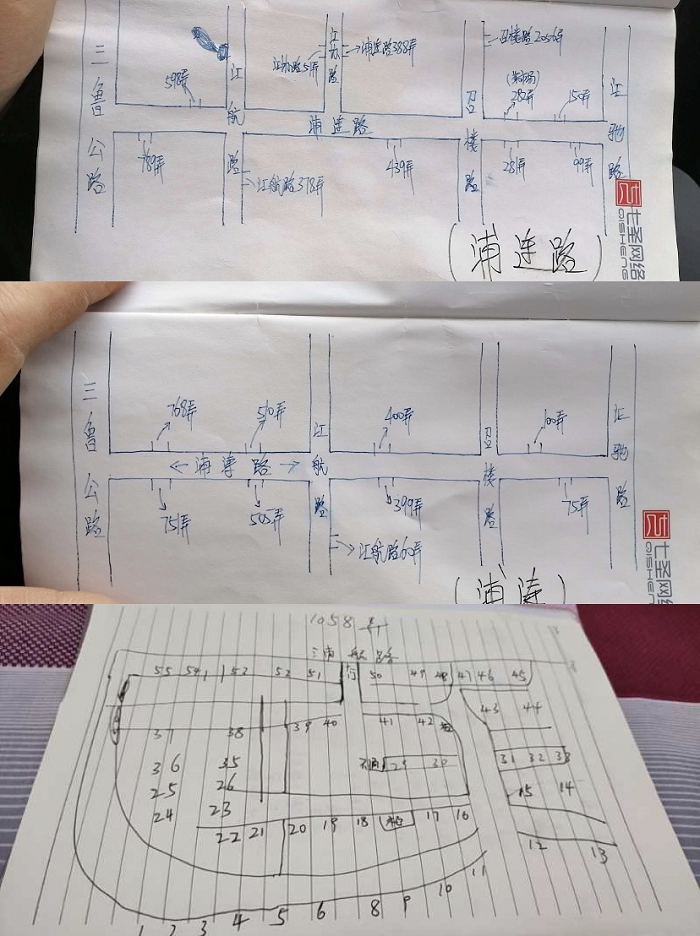 三鲁公路
598弄
江航路
江栎路51弄
浦连路388弄
召楼路2056弄
282弄
150弄
浦连路
召楼路
江驰路
789弄
江航路378弄
439弄
281弄
99弄
(浦连路)
七圣网络
QISHENG
三鲁公路
768弄
510弄
江航路
400弄
召楼路
100弄
江驰路
←浦涛路→
751弄
505弄
399弄
75弄
江航路60弄
七圣网络
QISHENG
(浦涛
1058弄
55 541 53 52 51 50 49 48 47 46 45
43 44
37 38 39 40 41 42
36 35 29 30 31 32 33
25 26 15 14
24 23
22 21 20 19 18 17 16
12 13
1 2 3 4 5 6 8 9 10 11